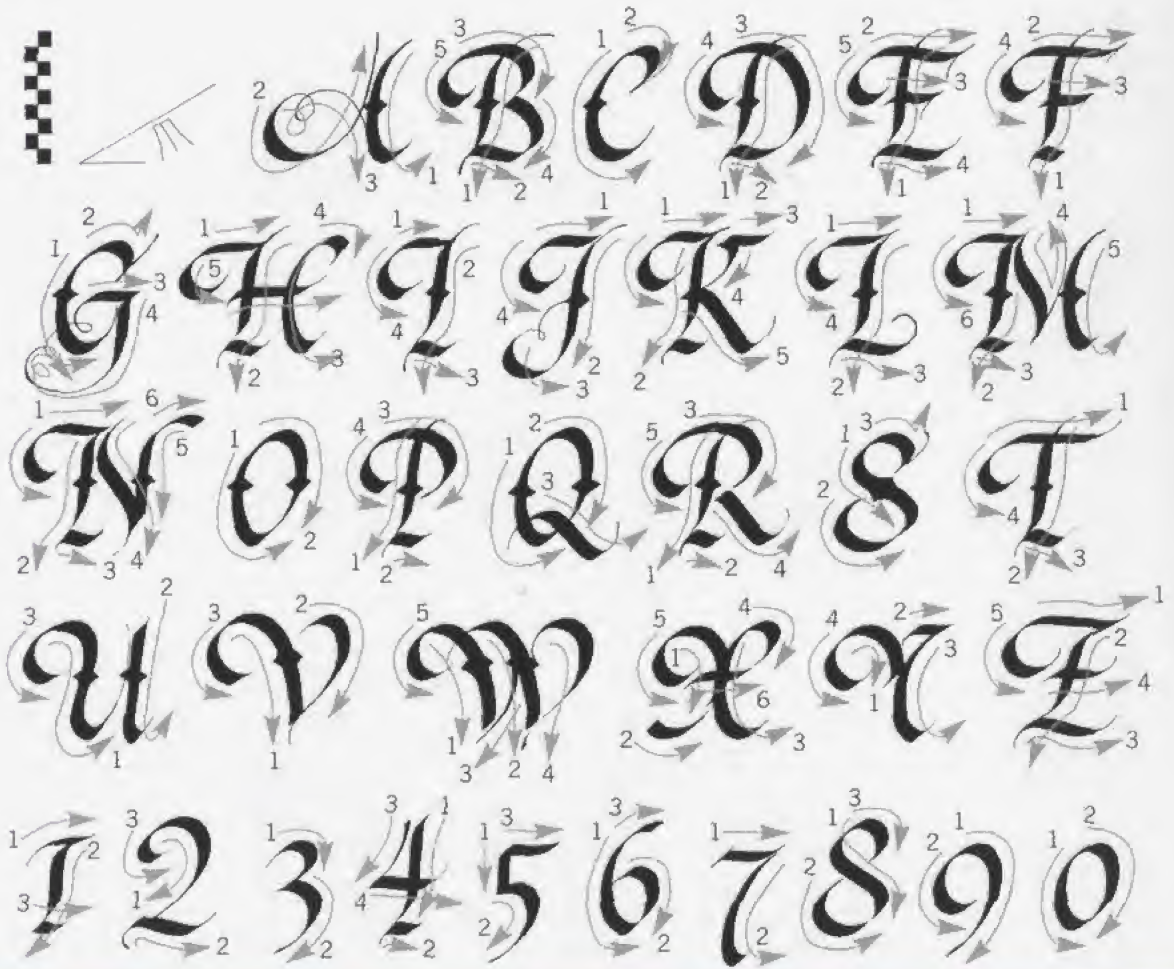 A B C D E F
G H I J K L M
N O P Q R S T
U V W X Y Z
1 2 3 4 5 6 7 8 9 0